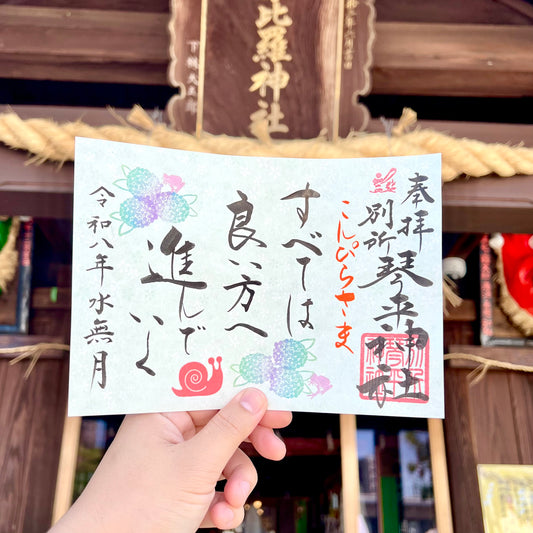 比羅神社
奉拝
別所琴平神社
こんぴらさま
すべては
良い方へ
進んで
いく
令和八年水無月